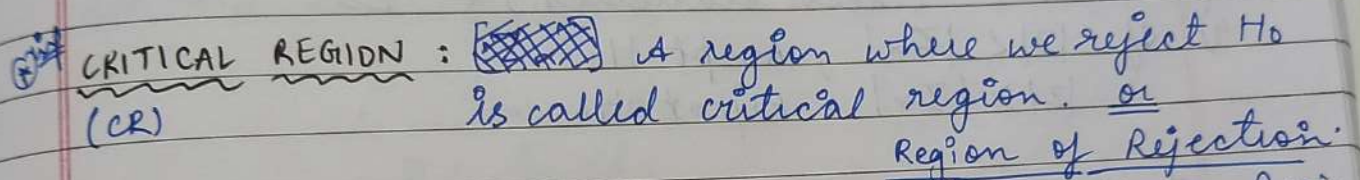 CRITICAL REGION : A region where we reject H0
(CR) is called critical region. or
Region of Rejection.